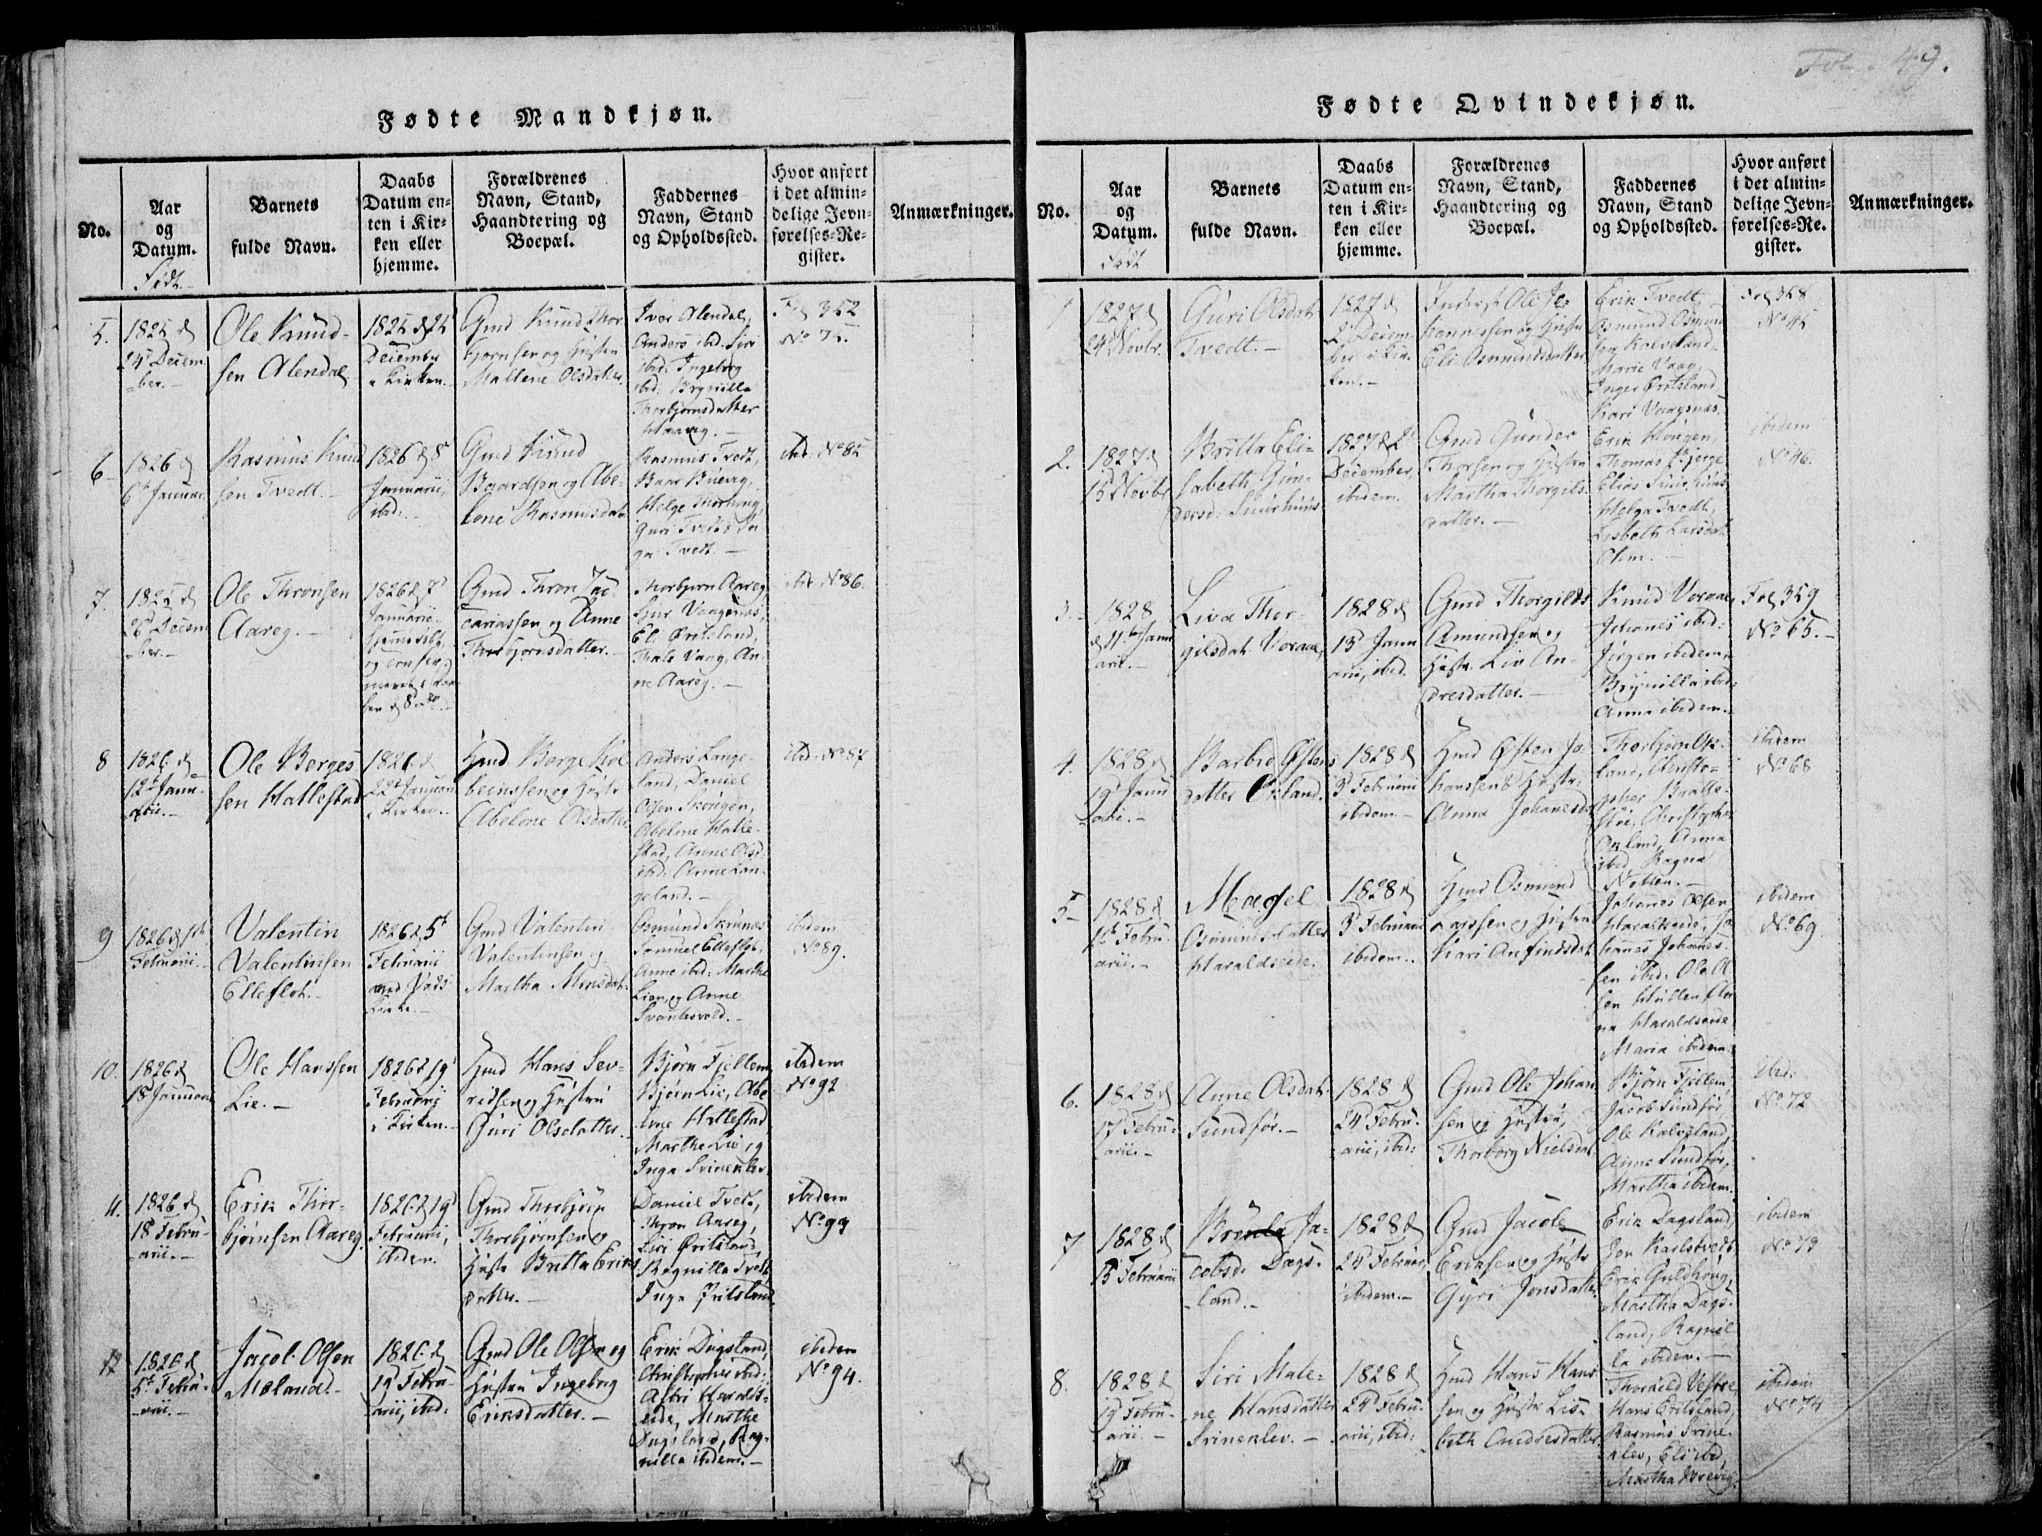 Fol. 49.
Fødte Mandkjøn.
No.
Aar
og
Datum.
Født
Barnets
fulde Navn.
Daabs
Datum en-
ten i Kir-
ken eller
hjemme.
Forældrenes
Navn, Stand,
Haandtering og
Boepæl.
Faddernes
Navn, Stand
og Opholdssted.
Hvor anført
i det almin-
delige Jevn-
førelses-Re-
gister.
Anmærkninger.
5.
1825 d
24 Decem
ber.
Ole Knud-
sen Alendal
1825 d 26
December
i Kirken.
Gmd Knud Thor
bjørnsen og Hustru
Malene Olsdatter
Iver Alendal,
Anders ibd. Siri
ibd. Ingeborg
ibd. Bronilla
Thorbjørnsdatter
Fol 352
No 75.
6
1826 d
6te Januar
Rasmus Knud
sen Tvedt.
1826 d 8
Januarii,
ibid.
Gmd Knud
Baardsen og Abe-
lone Rasmusdat.
Rasmus Tvedt,
Helge
Guri Tvedt, In
ga Tvedt.
ibd. No 85
7.
1825 d
26 Decem
ber.
Ole Thronsen
Aareg.
1826 d 7
Januarii
hjemedøbt
og confir-
meret i Kir
ken d 8 do
Gmd Thron Zac
cariassen og Anne
Thorbjørnsdatter.
Thorbjørn Aareg
Eli Øritsland,
Thale Vaag, An-
ne Aareg.
ibd No 86.
8
1826 d
12te Janu-
arii.
Ole Børges
sen Hallestad
1826 d
22 Januarii
i Kirken.
Hmd Børge Kol
beinssen og Hustr
Abelone Olsdatter
Anders Lange
land, Daniel
Olsen Skougen,
Abelone Halle-
stad, Anne Olsd
ibd. Anne Lan-
geland.
ibd. No 87
9
1826 d 1ste
Februarii.
Valentin
Valentinsen
Elleflot.
1826 d 5t
Februarii
ved Vads
Kirke.
Gmd Valentin
Valentinsen og
Martha Monsdat.
Osmund Skrunes
Samuel Elleflot,
Anne ibd. Marthe
Lien, og Anne
Svantesvold.
ibidem
No. 89.
10.
1826 d
18 Januarii
Ole Hanssen
Lie.
1826 d 19
Februarii
i Kirken.
Hmd Hans Sev-
ridsen og Hustru
Guri Olsdatter.
Bjørn Fjellem
Bjørn Lie, Abe
lone Hallestad
Marthe Lie, og
Inga Svineklev
ibidem
No 92
11.
1826 d
18 Febru-
arii.
Erik Thor-
bjørnsen Aareg
1826 d 19
Februarii,
ibidem.
Gmd Thorbjørn
Thorbjørnsen og
Hustr Britta Eriks
datter.
Daniel Tvedt,
Thron Aareg,
Siri Øritsland,
Ragnilla Tvedt
Inga Øritsland
ibidem
No. 93
12
1826 d
5te Febru-
arii.
Jacob Olsen
Mæland.
1826 d
19 Febru-
arii, ibd.
Gmd Ole Olsen og
Hustru Ingeborg
Eriksdatter.
Erik Dagsland,
Christopher ibd.
Astri Haralds-
eide, Marthe
Dagsland, Rag-
nilla ibidem.
ibidem
No. 94.
Fødte Qvindekjøn.
No.
Aar
og
Datum.
Født
Barnets
fulde Navn.
Daabs
Datum en-
ten i Kir-
ken eller
hjemme.
Forældrenes
Navn, Stand,
Haandtering og
Boepæl.
Faddernes
Navn, Stand
og Opholdssted.
Hvor anført
i det almin-
delige Jevn-
førelses-Re-
gister.
Anmærkninger.
1
1827 d
24 Novbr.
Guri Olsdat.
Tvedt.
1827 d
2 Decem-
ber i Kir-
ken.
Inderst Ole Jo-
hannessen og Hustru
Eli Osmundsdatter
Erik Tvedt,
Osmund Osmund
sen
Marie Vaag,
Inger Øritsland
Kari Vaagsnæs.
Fol 358
No 45
2.
1827 d
15 Novbr
Britta Eli-
sabeth Gun-
dersd. Snurhuus
1827 d 2
December,
ibidem.
Gmd Gunder
Thorsen og Hustru
Martha Thorgils-
datter.
Erik Hougen,
Thomas
Elias Snurhuus
Helga Tvedt,
Lisbeth Larsdat.
ibidem
No 46.
3.
1828
d 11te Janu
arii.
Liva Thor-
gilsdat. Voraae,
1828 d
13 Janu
arii, ibid.
Gmd Thorgilds
Amundsen og
Hustr. Liv An-
dresdatter.
Knud Voraae,
Johanes ibid:
Jørgen ibidem
Brynilla ibid.
Anna ibidem.
Fol 359
No 65.
4.
1828 d
19 Janu
arii.
Barbro Østens
datter Øxland.
1828 d
3 Februarii
ibidem.
Hmd Østen Jo
hanssen & Hustr:
Anna Johanesd
Thorbjørn Øx-
land, Christo-
pher Bratte-
Christopher
Oxland, Anna
ibid. Ragna
Notten.
ibidem
No 68
5
1828 d
1te Febru-
arii.
Magel
Osmundsdatter
Haraldseide.
1828 d
3 Februarii
ibidem.
Hmd Osmund
Larssen og Hustru
Kari Anfindsdat
Johanes Olsen
Haraldseide, Jo
hannes Johanes-
sen ibd. Ole Ol
sen Hatten, An
na Haraldseide
Maria ibidem.
ibidem
No. 69
6.
1828 d
17 Febru-
arii.
Anne Olsdat.
Sundfør.
1828 d
24 Febru-
arii, ibid:
Gmd Ole Johan
sen og Hustru,
Thorborg Nielsdat.
Bjørn Fjellem,
Jacob Sundfør,
Ole Kalvsland,
Anne Sundfør,
Martha ibidem.
ibid:
No. 72
7
1828 d
13 Februarii
Brønla Ja-
cobsd. Dags-
land.
1828 d
24 Februar,
ibidem.
Gmd Jacob
Eriksen og Hustr
Gyri Jonsdatter
Erik Dagsland,
Jon Karlstvedt,
Erik Guldhoug,
Martha Dags-
land, Ragnil
la ibidem.
ibidem
No 73
8.
1828 d
19 Febru-
arii.
Siri Male-
ne Hansdatter
Svineklev.
1828 d
24 Febru-
arii, ibid:
Hmd Hans Hans
sen og Hustr Lis-
beth Andresdatter
Thorkild Vestre,
Hans Øritsland,
Rasmus Svine
klev, Eli ibid,
Martha
ibidem
No 74